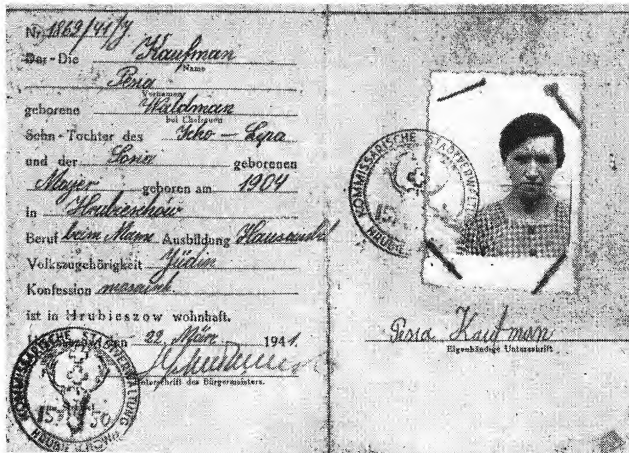 Nr. 1862/41/J.
Der-Die Kaufman
Name
Pesia
Vornamen
geborene Waldman
bei Ehefrauen
Sohn-Tochter des Icho-Lejza
und der Soria geborenen
Majer geboren am 1904
in Hrubieschów
Beruf beim Mann Ausbildung
Volkszugehörigkeit Jüdin
Konfession
ist in Hrubieszow wohnhaft.
den 22. März 1941.
Unterschrift des Bürgermeisters.
KOMMISSARISCHE STADTVERWALTUNG
15
KOMMISSARISCHE STADTVERWALTUNG
15
Pesia Kaufman
Eigenhändige Unterschrift.